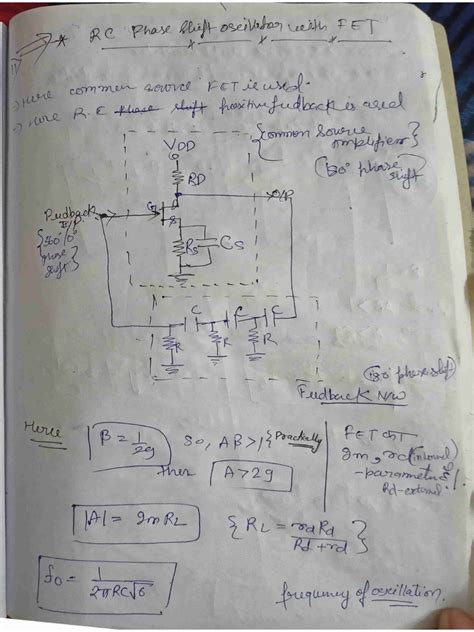 RC Phase Shift oscillator with FET
→ Here common source FET is used.
→ Here R.C phase shift positive feedback is used
{common source amplifier}
(180° phase shift)
VDD
RD
O/P
Feedback
{360°/0° phase shift}
G
S
Rs
Cs
C C C
R R R
(180° phase shift)
Feedback N/W
Here
B = 1/29
So, AB>1 {Practically}
then A>29
FET का
gm, rd (internal
-parameters)
Rd-external
|A| = gmRL
{RL = rdRd/Rd+rd}
fo = 1/2πRC√6
frequency of oscillation.